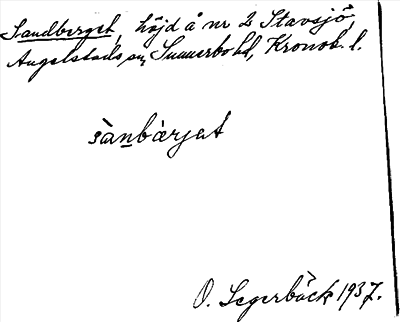 Sandberget, höjd å nr 2 Stavsjö,
Angelstads sn, Sunnerbo hd, Kronob. l.
sànbàrjat
O. Segerbäck 1937.